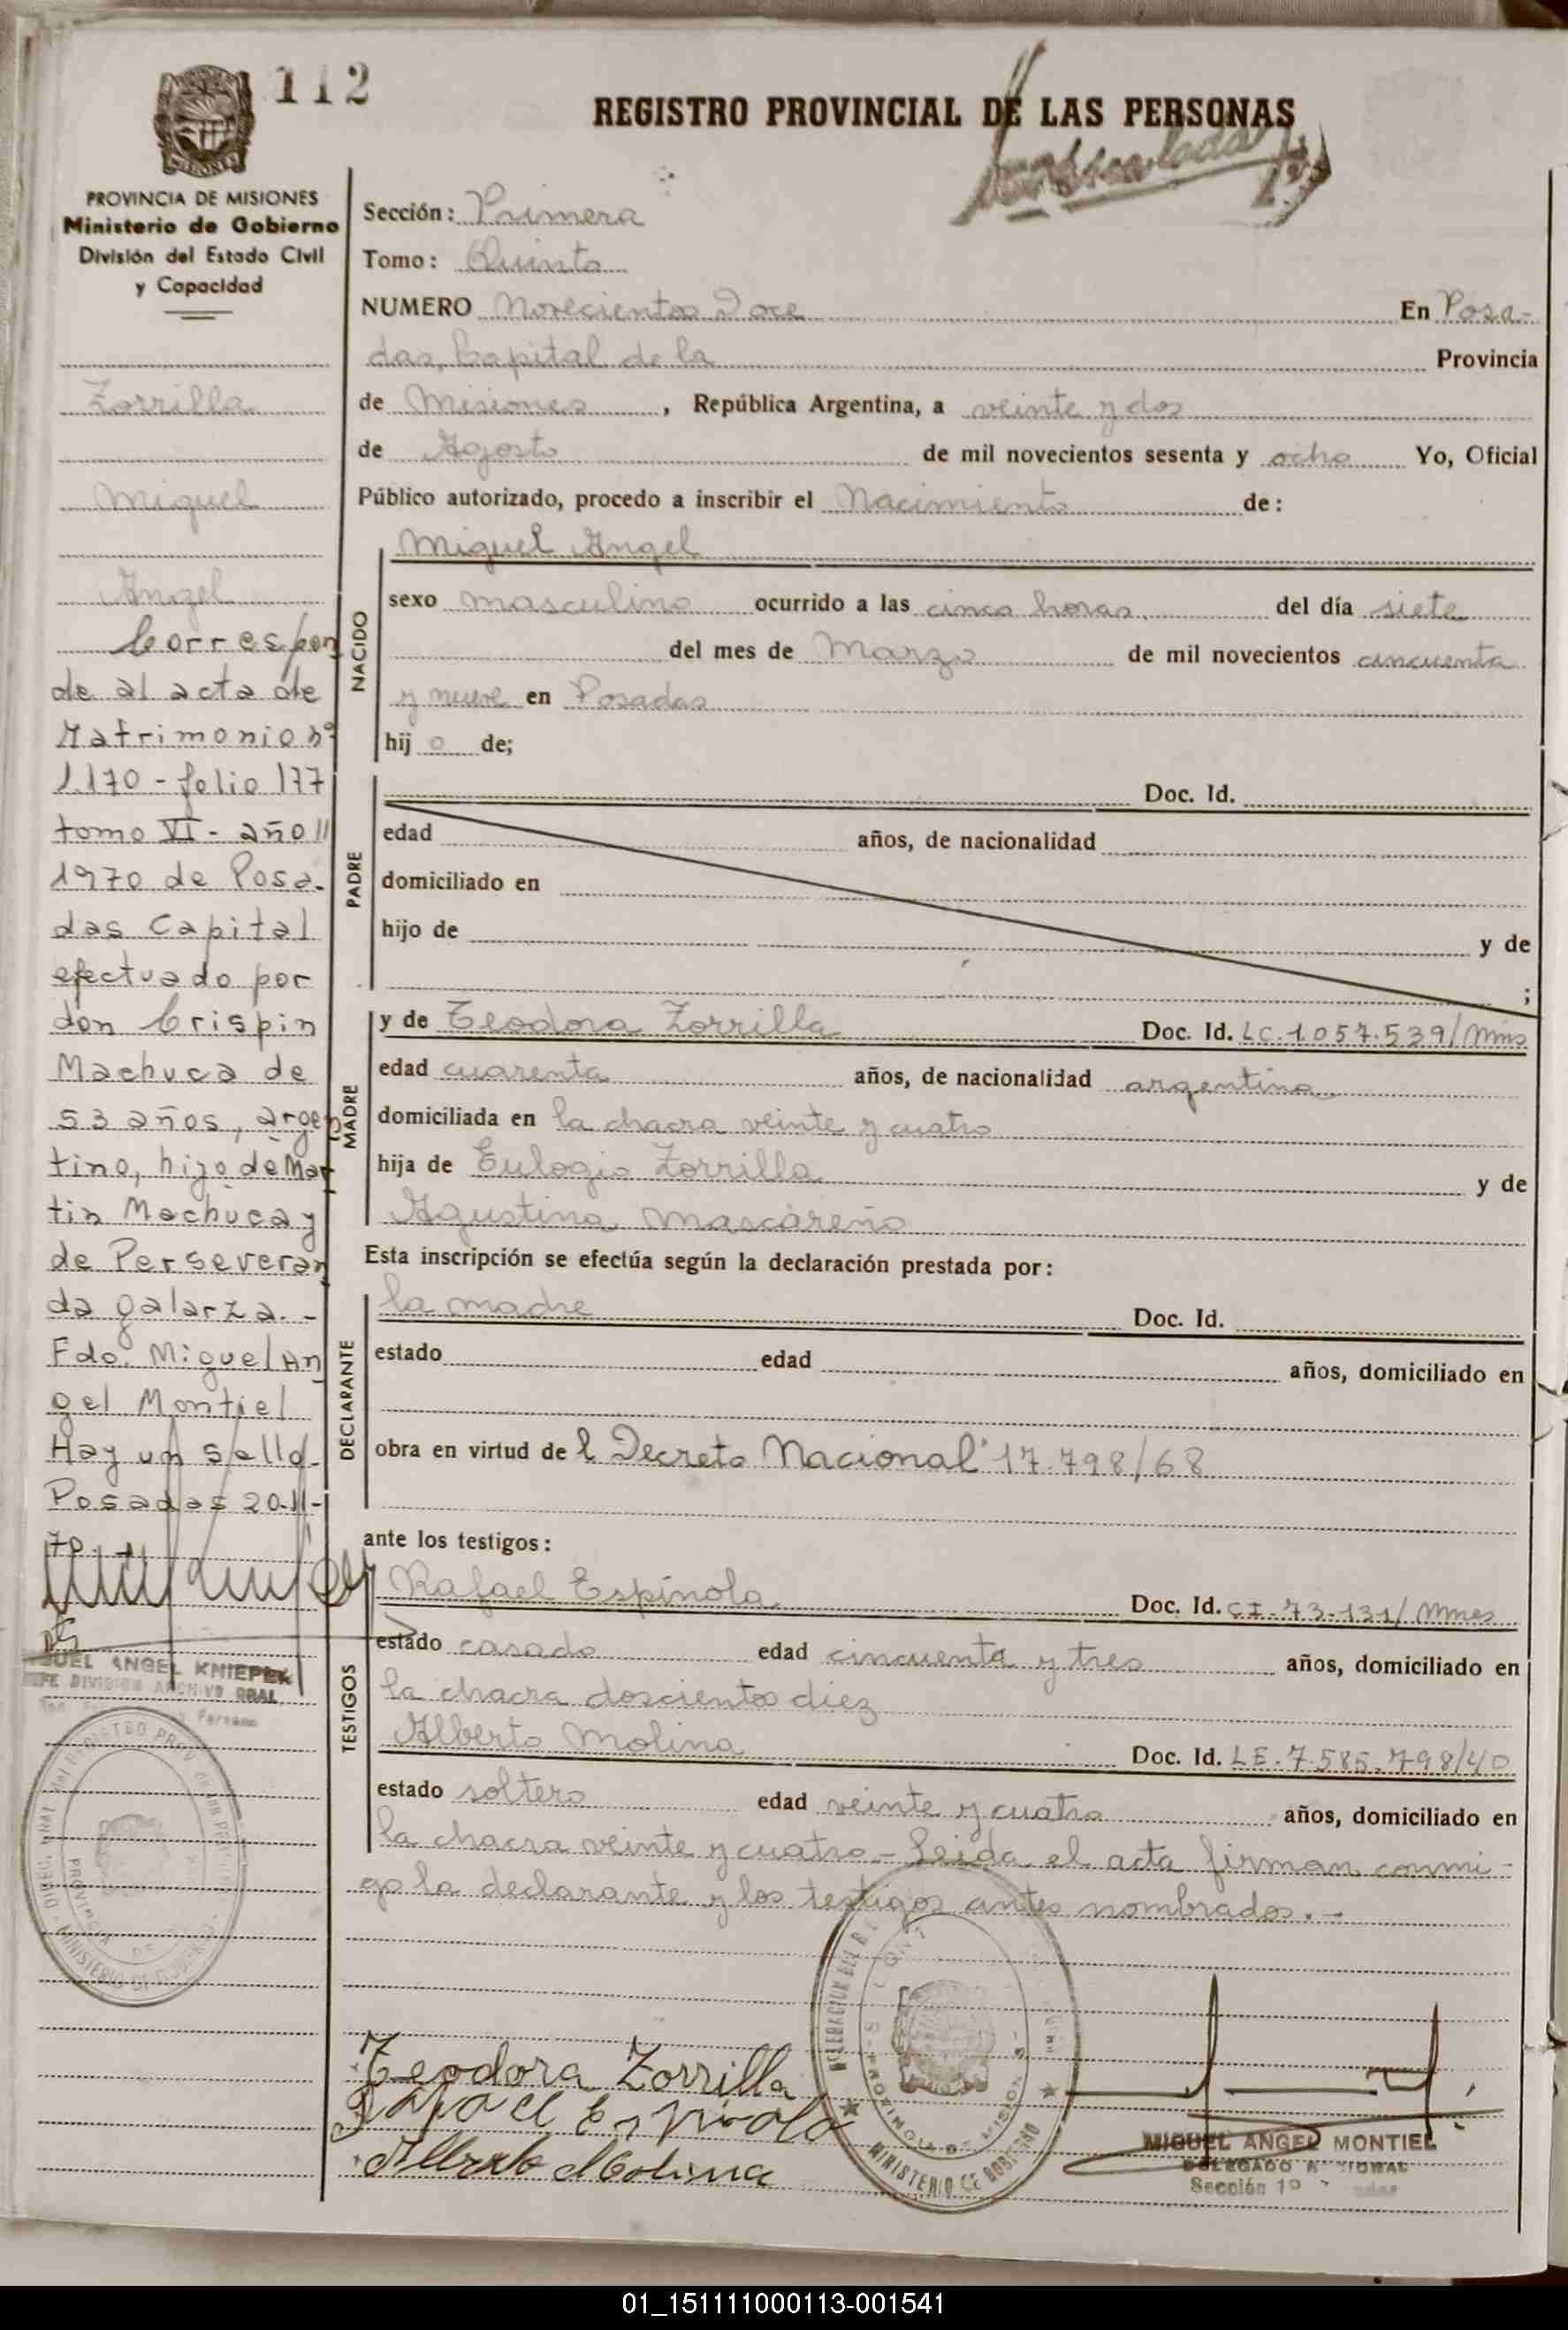 112
REGISTRO PROVINCIAL DE LAS PERSONAS
PROVINCIA DE MISIONES
Ministerio de Gobierno
División del Estado Civil
y Capacidad
Zorrilla
Miguel
Angel
Correspon
de al acta de
Matrimonio nº
1.170 - folio 177
tomo VI - año
1970 de Posa-
das Capital
efectuado por
don Crispin
Machuca de
53 años, argen
tino, hijo de Mar
tin Machuca y
de Perseveran
da galarza. -
Fdo. Miguel An
gel Montiel
Hay un sello-
Posadas 20-11-
70
MIGUEL ANGEL KNIEPEK
JEFE DIVISION ARCHIVO GRAL.
MINISTERIO DE GOBIERNO
PROVINCIA DE
Sección: Primera
Tomo: Quinto
NUMERO Novecientos Doce En Posa-
das, Capital de la Provincia
de Misiones, República Argentina, a veinte y dos
de Agosto de mil novecientos sesenta y ocho Yo, Oficial
Público autorizado, procedo a inscribir el Nacimiento de:
NACIDO
Miguel Angel
sexo masculino ocurrido a las cinco horas. del día siete
del mes de Marzo de mil novecientos cincuenta
y nueve en Posadas
hij o de;
PADRE
Doc. Id.
edad años, de nacionalidad
domiciliado en
hijo de y de
;
MADRE
y de Teodora Zorrilla Doc. Id. LC. 1.057.539/Mns
edad cuarenta años, de nacionalidad argentina
domiciliada en la chacra veinte y cuatro
hija de Eulogio Zorrilla y de
Agustina Mascareño
Esta inscripción se efectúa según la declaración prestada por:
DECLARANTE
la madre Doc. Id.
estado edad años, domiciliado en
obra en virtud de l Decreto Nacional 17.798/68
ante los testigos:
TESTIGOS
Rafael Espínola Doc. Id. CI. 73.131/Mnes
estado casado edad cincuenta y tres años, domiciliado en
la chacra doscientos diez
Alberto Molina Doc. Id. LE. 7.585.798/40
estado soltero edad veinte y cuatro años, domiciliado en
la chacra veinte y cuatro - Leida el acta firman conmi-
go la declarante y los testigos antes nombrados. -
Teodora Zorrilla
Rafael Espinola
Alberto Molina
PROVINCIA DE MISIONES
MINISTERIO DE GOBIERNO
MIGUEL ANGEL MONTIEL
DELEGADO
Sección 1º
01_151111000113-001541